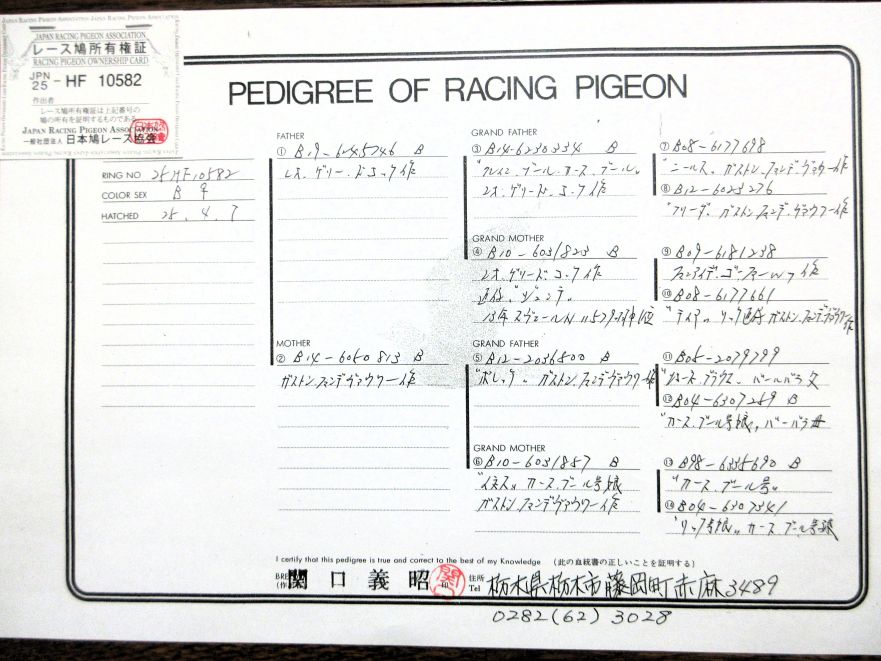 JAPAN RACING PIGEON ASSOCIATION
レース鳩所有権証
RACING PIGEON OWNERSHIP CARD
JPN
25 - HF 10582
作出者
レース鳩所有権証は上記番号の
鳩の所有を証明するものである
JAPAN RACING PIGEON ASSOCIATION
一般社団法人 日本鳩レース協会
PEDIGREE OF RACING PIGEON
RING NO 25HF10582
COLOR SEX B ♀
HATCHED 25. 4. 7
FATHER
① B19-6245746 B
レオ.ゲリード.コック作
MOTHER
② B14-6050813 B
ガストン.ファンデヴァウワー作
GRAND FATHER
③ B14-6230334 B
カース.プール
レオ.ゲリード.コック作
GRAND MOTHER
④ B10-6031823 B
レオ.ゲリード.コック作
GRAND FATHER
⑤ B12-2036500 B
ガストン.ファンデヴァウワー作
GRAND MOTHER
⑥ B10-6031857 B
カース.プール号娘
ガストン.ファンデヴァウワー作
⑦ B08-6177698
"ニールス" ガストン.ファンデヴァウワー作
⑧ B12-6023276
"フリーダ" ガストン.ファンデヴァウワー作
⑨ B09-6181238
⑩ B08-6177661
ガストン.ファンデヴァウワー作
⑪ B05-2079799
⑫ B04-6307259 B
"カース.プール号娘" バーバラ母
⑬ B98-6335690 B
"カース.プール号"
⑭ B04-6307341
"リック号娘" カース.プール号孫
I certify that this pedigree is true and correct to the best of my Knowledge (この血統書の正しいことを証明する)
関口義昭 印 住所 栃木県栃木市藤岡町赤麻3489
Tel 0282(62)3028